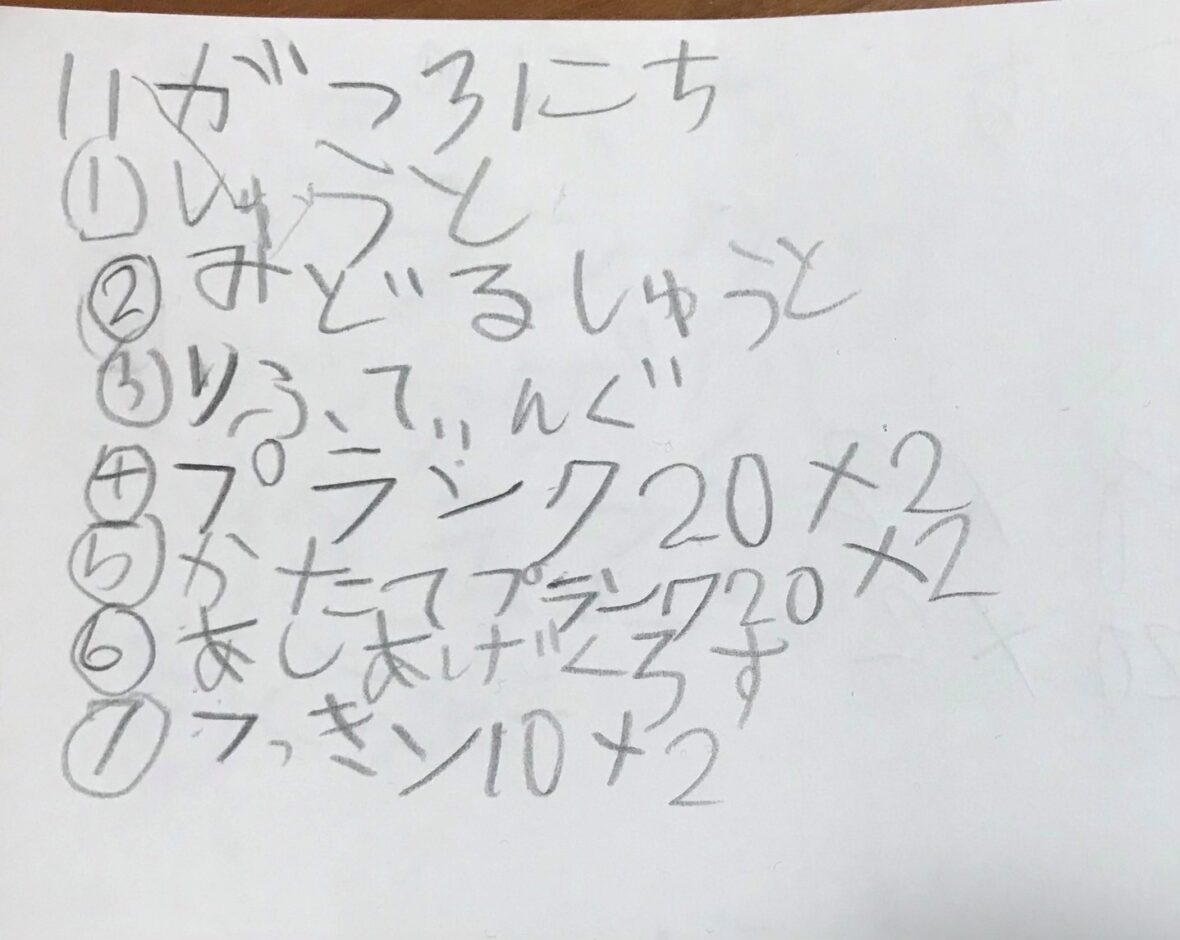 11がつ3にち
①しゅうと
②みどるしゅうと
③りふてぃんぐ
④プランク20×2
⑤かたてプランク20×2
⑥あしあげくろす
⑦フっきン10×2